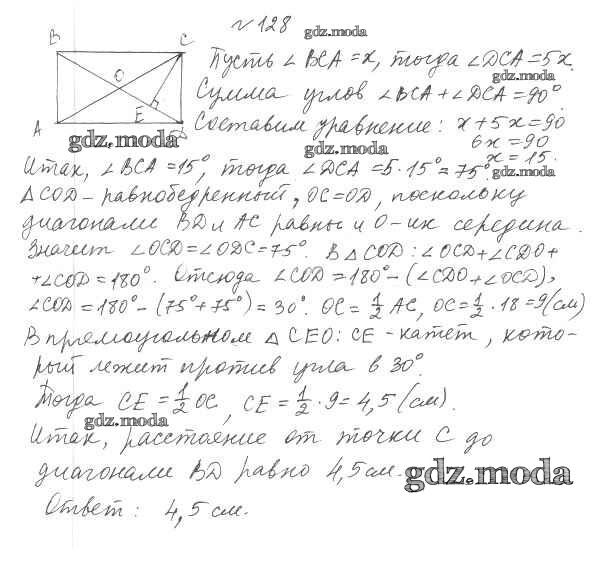 № 128 gdz.moda
B C
O
E
A D
gdz.moda
Пусть ∠BCA = x, тогда ∠DCA = 5x.
gdz.moda
Сумма углов ∠BCA + ∠DCA = 90°.
Составим уравнение: x + 5x = 90
gdz.moda 6x = 90
x = 15.
Итак, ∠BCA = 15°, тогда ∠DCA = 5·15° = 75° gdz.moda
△COD – равнобедренный, OC = OD, поскольку
диагонали BD и AC равны и O – их середина.
Значит ∠OCD = ∠ODC = 75°. В △COD: ∠OCD + ∠CDO +
+ ∠COD = 180°. Отсюда ∠COD = 180° – (∠CDO + ∠OCD),
∠COD = 180° – (75° + 75°) = 30°. OC = 1/2 AC, OC = 1/2 · 18 = 9 (см)
В прямоугольном △CEO: CE – катет, кото-
рый лежит против угла в 30°.
Тогда CE = 1/2 OC, CE = 1/2 · 9 = 4,5 (см).
gdz.moda
Итак, расстояние от точки C до
диагонали BD равно 4,5 см. gdz.moda
Ответ: 4,5 см.